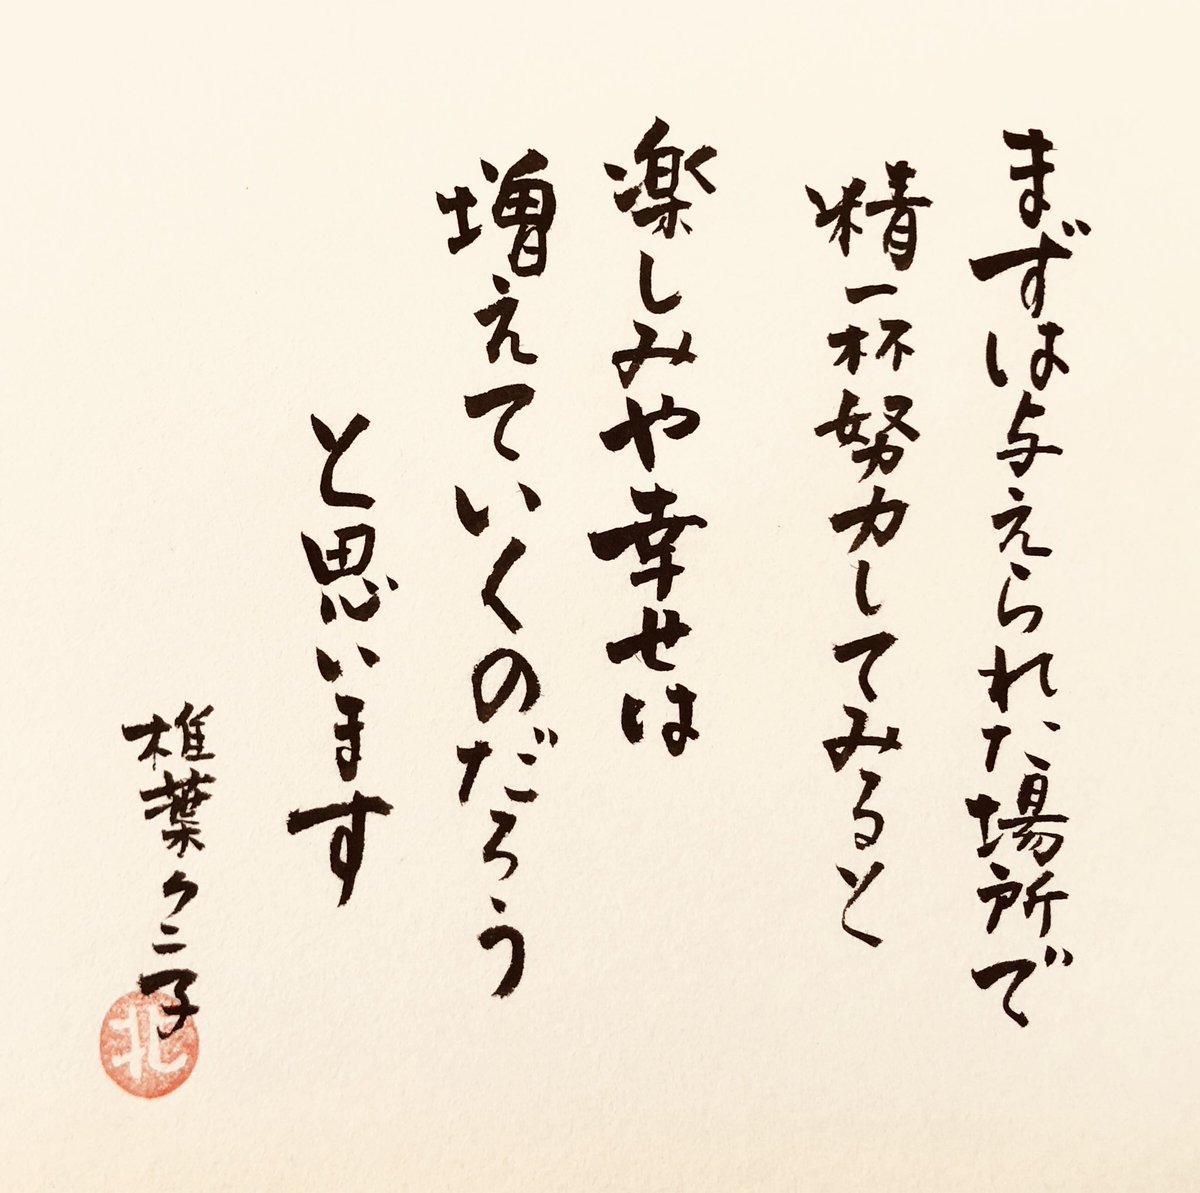 まずは与えられた場所で
精一杯努力してみると
楽しみや幸せは
増えていくのだろう
と思います
椎葉クニ子
北